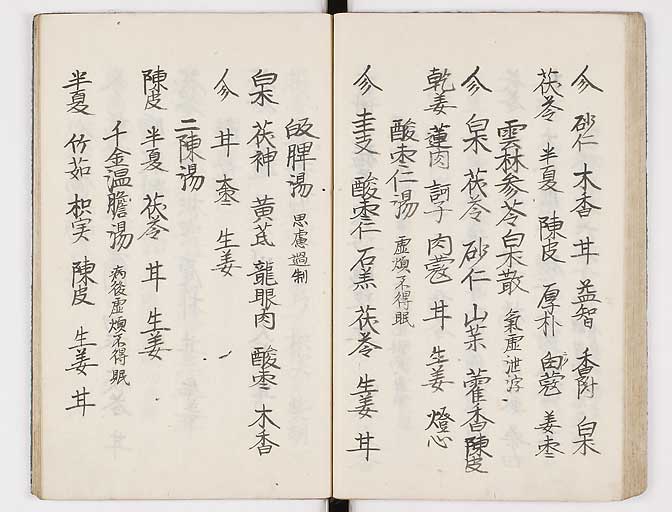 参 砂仁 木香 甘 益智 香附 白朮
茯苓 半夏 陳皮 厚朴 白蔲 姜 枣
雲林参苓白朮散 氣虚泄泻
参 白朮 茯苓 砂仁 山茱 藿香 陳皮
乾姜 蓮肉 訶子 肉蔲 甘 生姜 燈心
酸枣仁湯 虚煩不得眠
参 圭支 酸枣仁 石羔 茯苓 生姜 甘
皈脾湯 思慮過制
白朮 茯神 黄芪 龍眼肉 酸枣 木香
参 甘 枣 生姜
二陳湯
陳皮 半夏 茯苓 甘 生姜
千金温膽湯 病後虚煩不得眠
半夏 竹茹 枳実 陳皮 生姜 甘